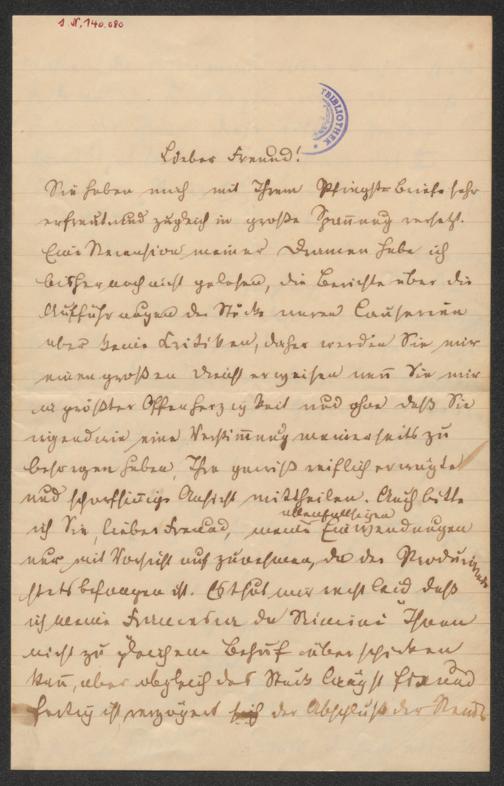 I. N. 140.080
TBIBLIOTHEK
Lieber Freund!
Sie haben mich mit Ihrem Pfingstbriefe sehr
erfreut und zugleich in große Spannung versetzt.
Eine Recension meiner Dramen habe ich
bisher noch nicht gelesen, die Berichte über die
Aufführungen der Stücke waren Causerien
aber keine Kritiken, daher werden Sie mir
einen großen Dienst erweisen wenn Sie mir
in größter Offenherzigkeit und ohne daß Sie
irgendwie eine Verstimmung meinerseits zu
besorgen haben, Ihre gewiß reiflich erwägte
und scharfsinnige Ansicht mittheilen. Auch bitte
allenfallsigen
ich Sie, lieber Freund, meine Einwendungen
nur mit Vorsicht aufzunehmen, da der
stets befangen ist. Es thut mir recht leid daß
ich meine Francesca da Rimini Ihnen
nicht zu gleichem Behuf überschicken
kann, aber obgleich das Stück längst fix und
fertig ist, verzögert sich der Abschluß der